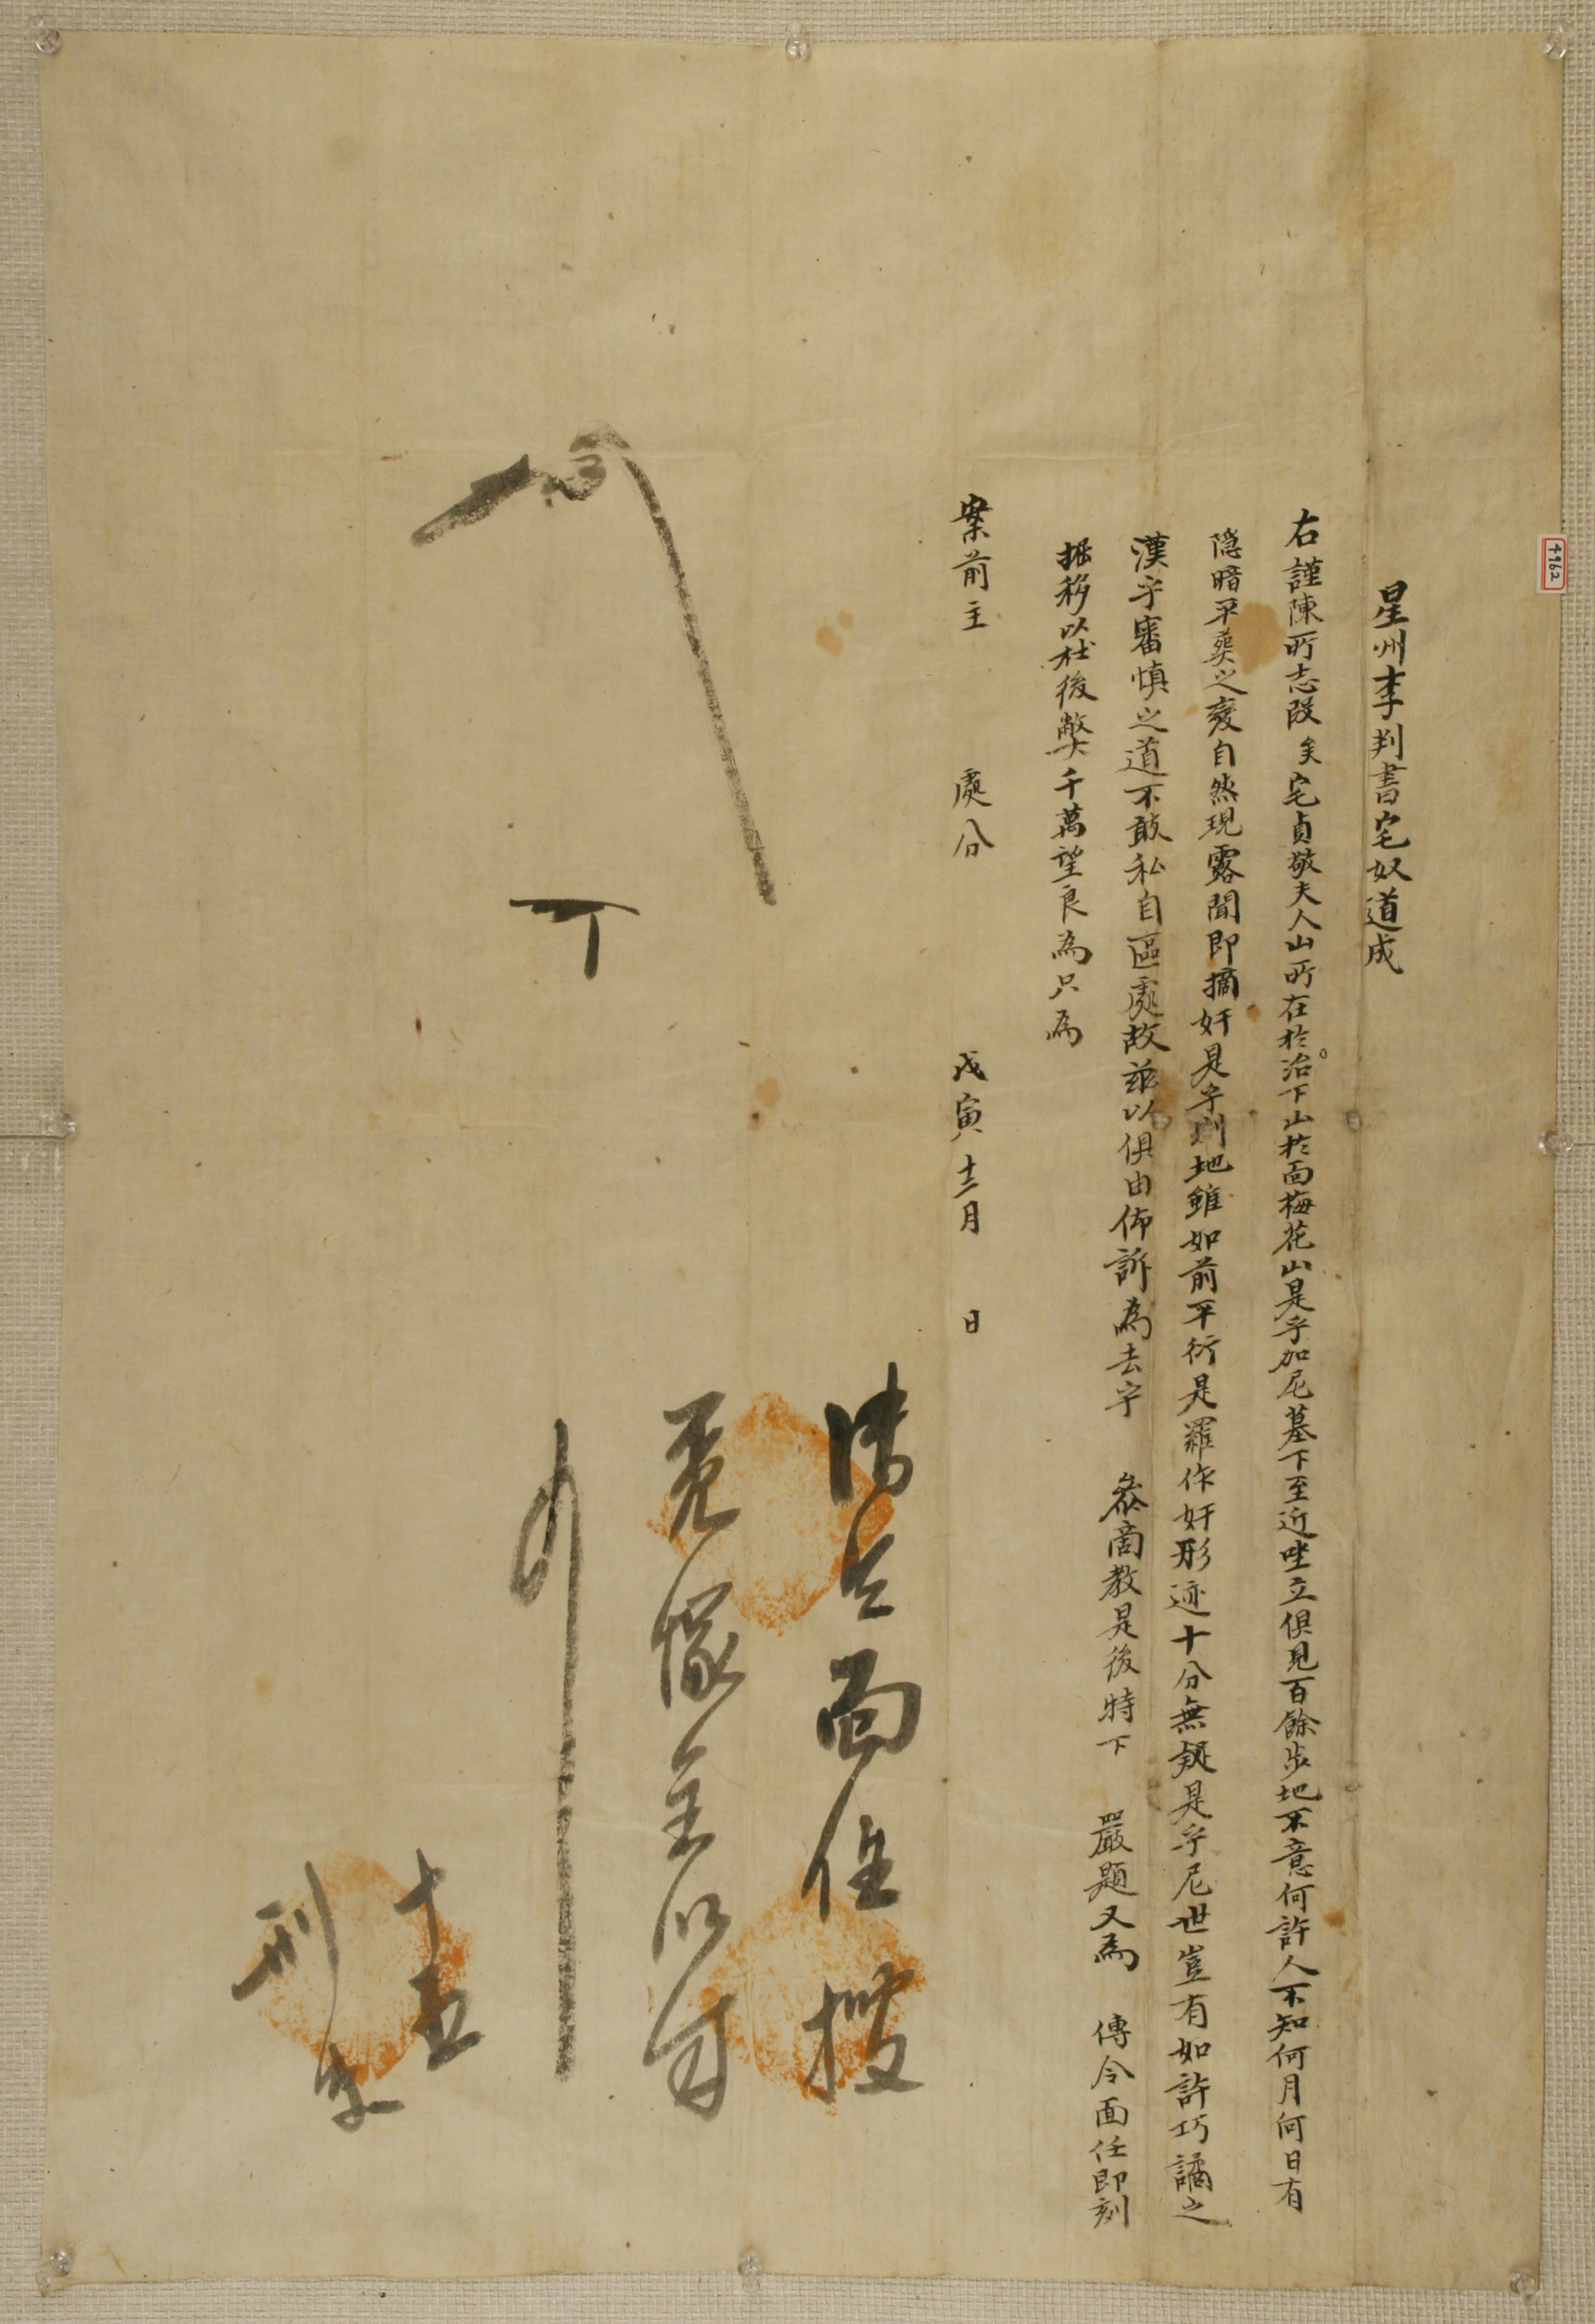 星州李判書宅奴道成
右謹陳所志段矣宅貞敬夫人山所在於治下山於面梅花山是乎加尼墓下至近坐立俱見百餘步地不意何許人不知何月何日有
隱暗平葬之变自然現露聞即摘奸是乎則地雖如前平衍是羅作奸形迹十分無疑是乎尼世豈有如許巧譎之
漢乎審慎之道不敢私自區處故玆以俱由佈訴為去乎 叅商教是後特下 嚴題又為 傳令面任即刻
掘移以杜後獘千萬望良為只為
案前主 處分 戊寅十二月 日
傳令面任搜
覓塚主以給

十五
刑房
4962